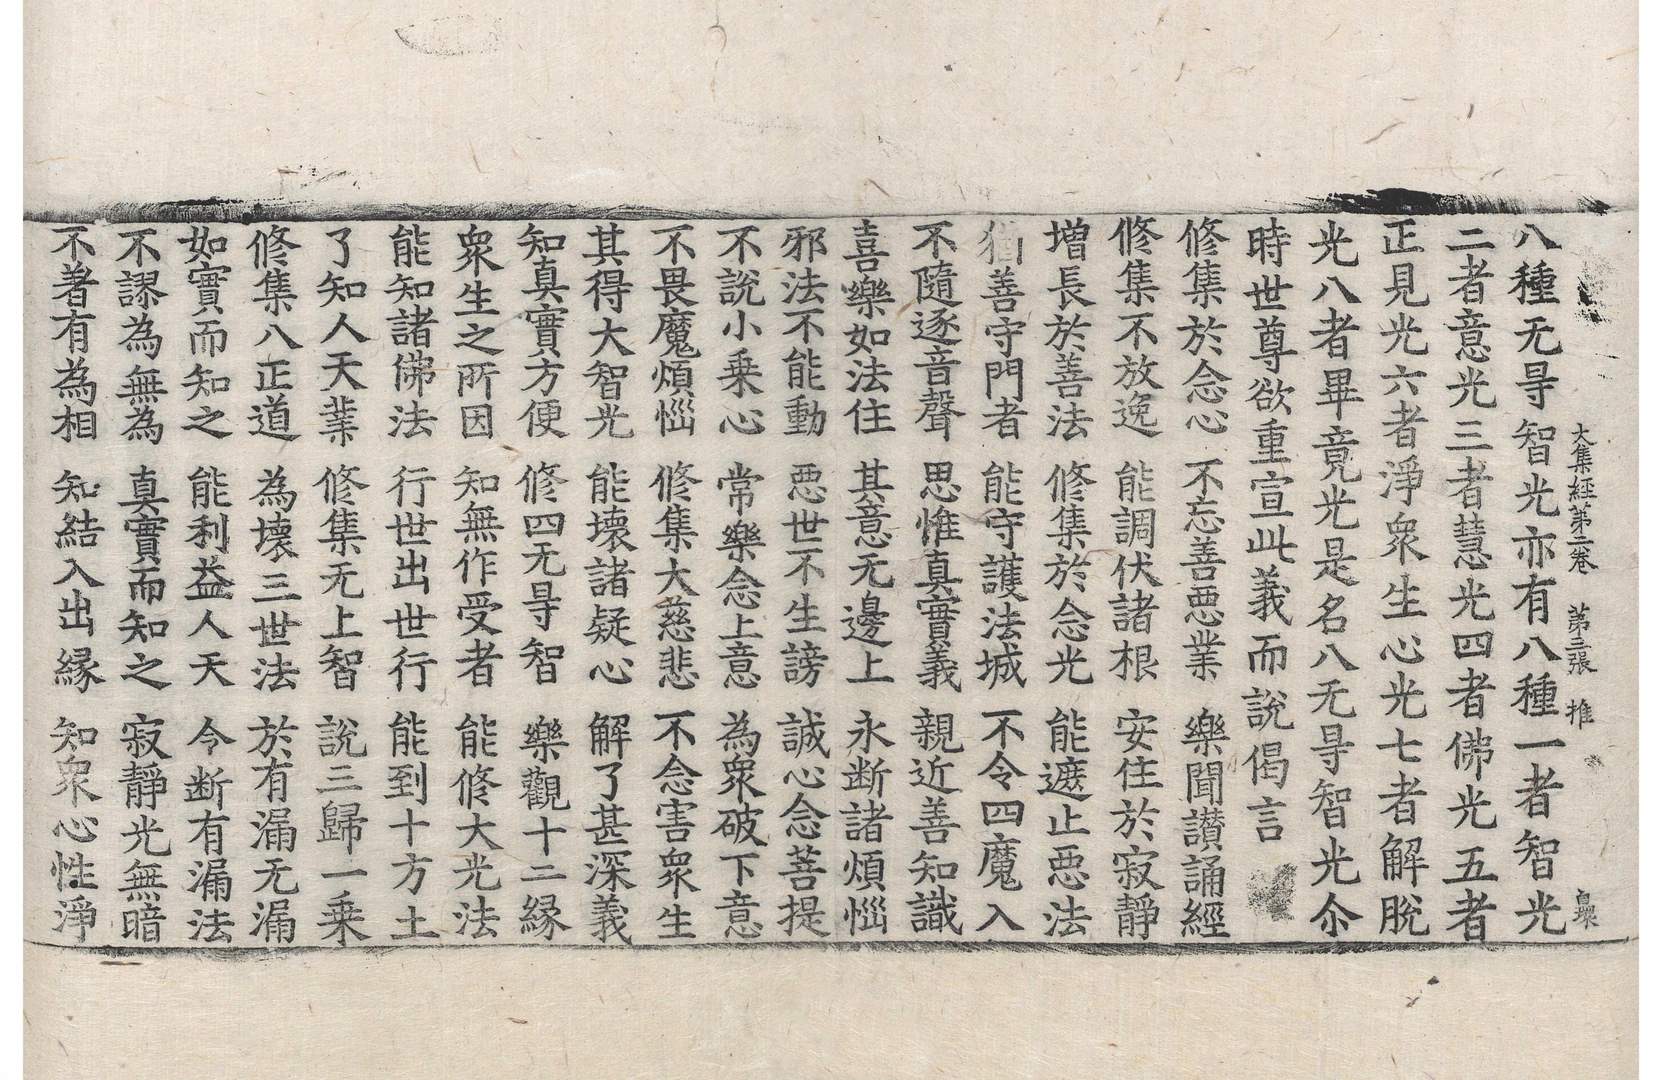 大集經第二卷 第三張 推 㮚
八種无㝵智光亦有八種一者智光
二者意光三者慧光四者佛光五者
正見光六者淨衆生心光七者解脫
光八者畢竟光是名八无㝵智光尒
時世尊欲重宣此義而說偈言
修集於念心 不忘善惡業 樂聞讃誦經
修集不放逸 能調伏諸根 安住於寂靜
增長於善法 修集於念光 能遮止惡法
猶善守門者 能守護法城 不令四魔入
不隨逐音聲 思惟真實義 親近善知識
喜樂如法住 其意无邊上 永断諸煩惱
邪法不能動 惡世不生謗 誠心念菩提
不說小乗心 常樂念上意 為衆破下意
不畏魔煩惱 修集大慈悲 不念害衆生
其得大智光 能壞諸疑心 解了甚深義
知真實方便 修四无㝵智 樂觀十二緣
衆生之所因 知無作受者 能修大光法
能知諸佛法 行世出世行 能到十方土
了知人天業 修集无上智 說三歸一乗
修集八正道 為壞三世法 於有漏无漏
如實而知之 能利益人天 令断有漏法
不謬為無為 真實而知之 寂靜光無暗
不著有為相 知結入出緣 知衆心性淨